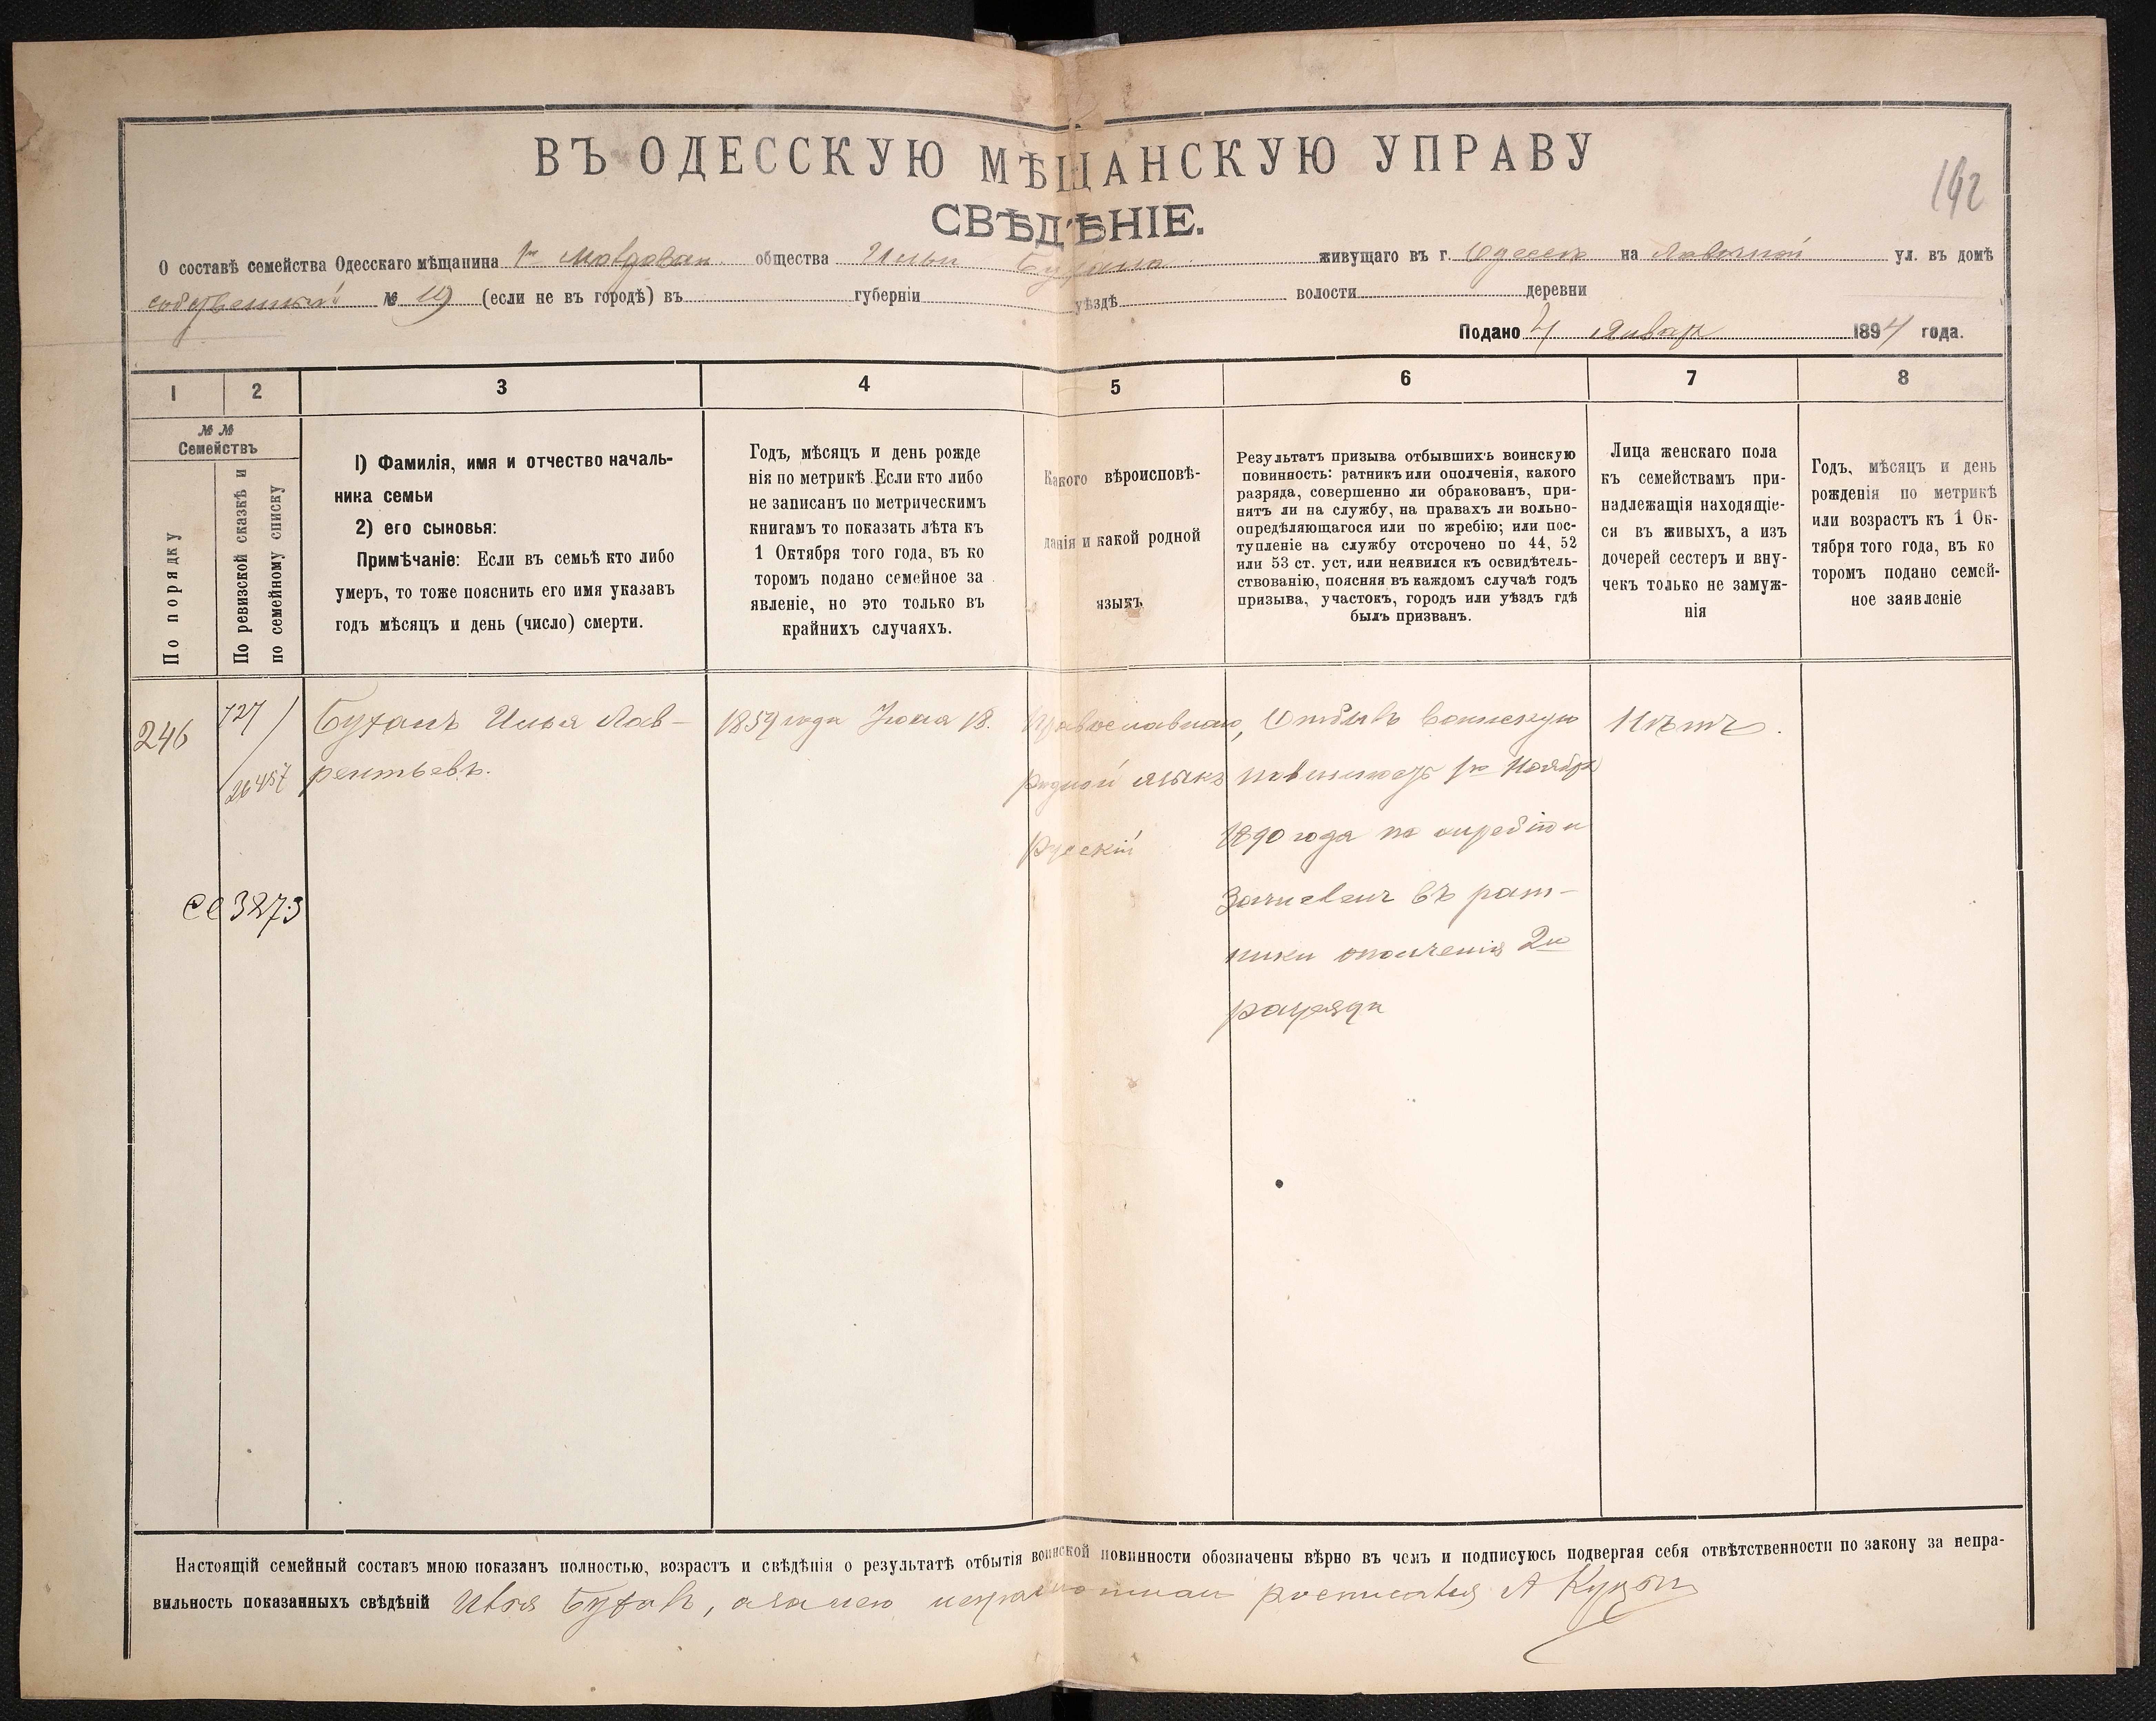 ВЪ ОДЕССКУЮ МѢЩАНСКУЮ УПРАВУ
142
СВѢДѢНІЕ.
О составѣ семейства Одесскаго мѣщанина общества Ильи Бухана живущаго въ г. Одессѣ на ул. въ домѣ
собственный № 19 (если не въ городѣ) въ губерніи уѣздѣ волости деревни
Подано 4 Января 1894 года.
1 2 3 4 5 6 7 8
№ №
Семействъ
По порядку
По ревизской сказкѣ и
по семейному списку
1) Фамилія, имя и отчество началь-
ника семьи
2) его сыновья:
Примѣчаніе: Если въ семьѣ кто либо
умеръ, то тоже пояснить его имя указавъ
годъ мѣсяцъ и день (число) смерти.
Годъ, мѣсяцъ и день рожде
нія по метрикѣ. Если кто либо
не записанъ по метрическимъ
книгамъ то показать лѣта къ
1 Октября того года, въ ко
торомъ подано семейное за
явленіе, но это только въ
крайнихъ случаяхъ.
Какого вѣроисповѣ-
данія и какой родной
языкъ
Результатъ призыва отбывшихъ воинскую
повинность: ратникъ или ополченія, какого
разряда, совершенно ли обракованъ, при-
нятъ ли на службу, на правахъ ли вольно-
опредѣляющагося или по жребію; или пос-
тупленіе на службу отсрочено по 44, 52
или 53 ст. уст, или неявился къ освидѣтель-
ствованію, поясняя въ каждомъ случаѣ годъ
призыва, участокъ, городъ или уѣздъ гдѣ
былъ призванъ.
Лица женскаго пола
къ семействамъ при-
надлежащія находящіе-
ся въ живыхъ, а изъ
дочерей сестеръ и вну-
чекъ только не замуж-
нія
Годъ, мѣсяцъ и день
рожденія по метрикѣ
или возрастъ къ 1 Ок-
тября того года, въ ко
торомъ подано семей-
ное заявленіе
246
727/
26457
3273
Буханъ Илья Лав-
рентьевъ.
1859 года 18.
Православнаго,
родной языкъ
Русскій
Отбылъ воинскую
повинность Ноября
1890 года по жребію и
Зачисленъ въ рат-
ники ополченія 2го
разряда
Нѣтъ.
Настоящій семейный составъ мною показанъ полностью, возрастъ и свѣдѣнія о результатѣ отбытія воинской повинности обозначены вѣрно въ чемъ и подписуюсь подвергая себя отвѣтственности по закону за непра-
вильность показанныхъ свѣдѣній Илья Буханъ, а за него неграмотнаго росписался А